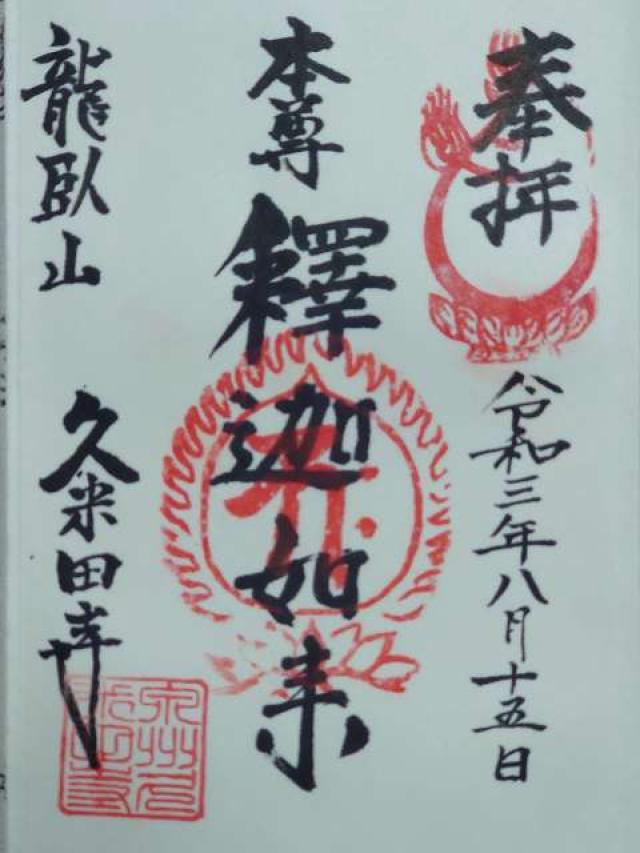 奉拝
令和三年八月十五日
本尊
釋迦如来
龍臥山
久米田寺